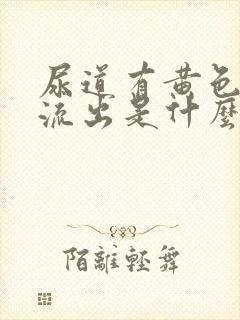 尿道有黄色
流出是什麼
陌離輕舞